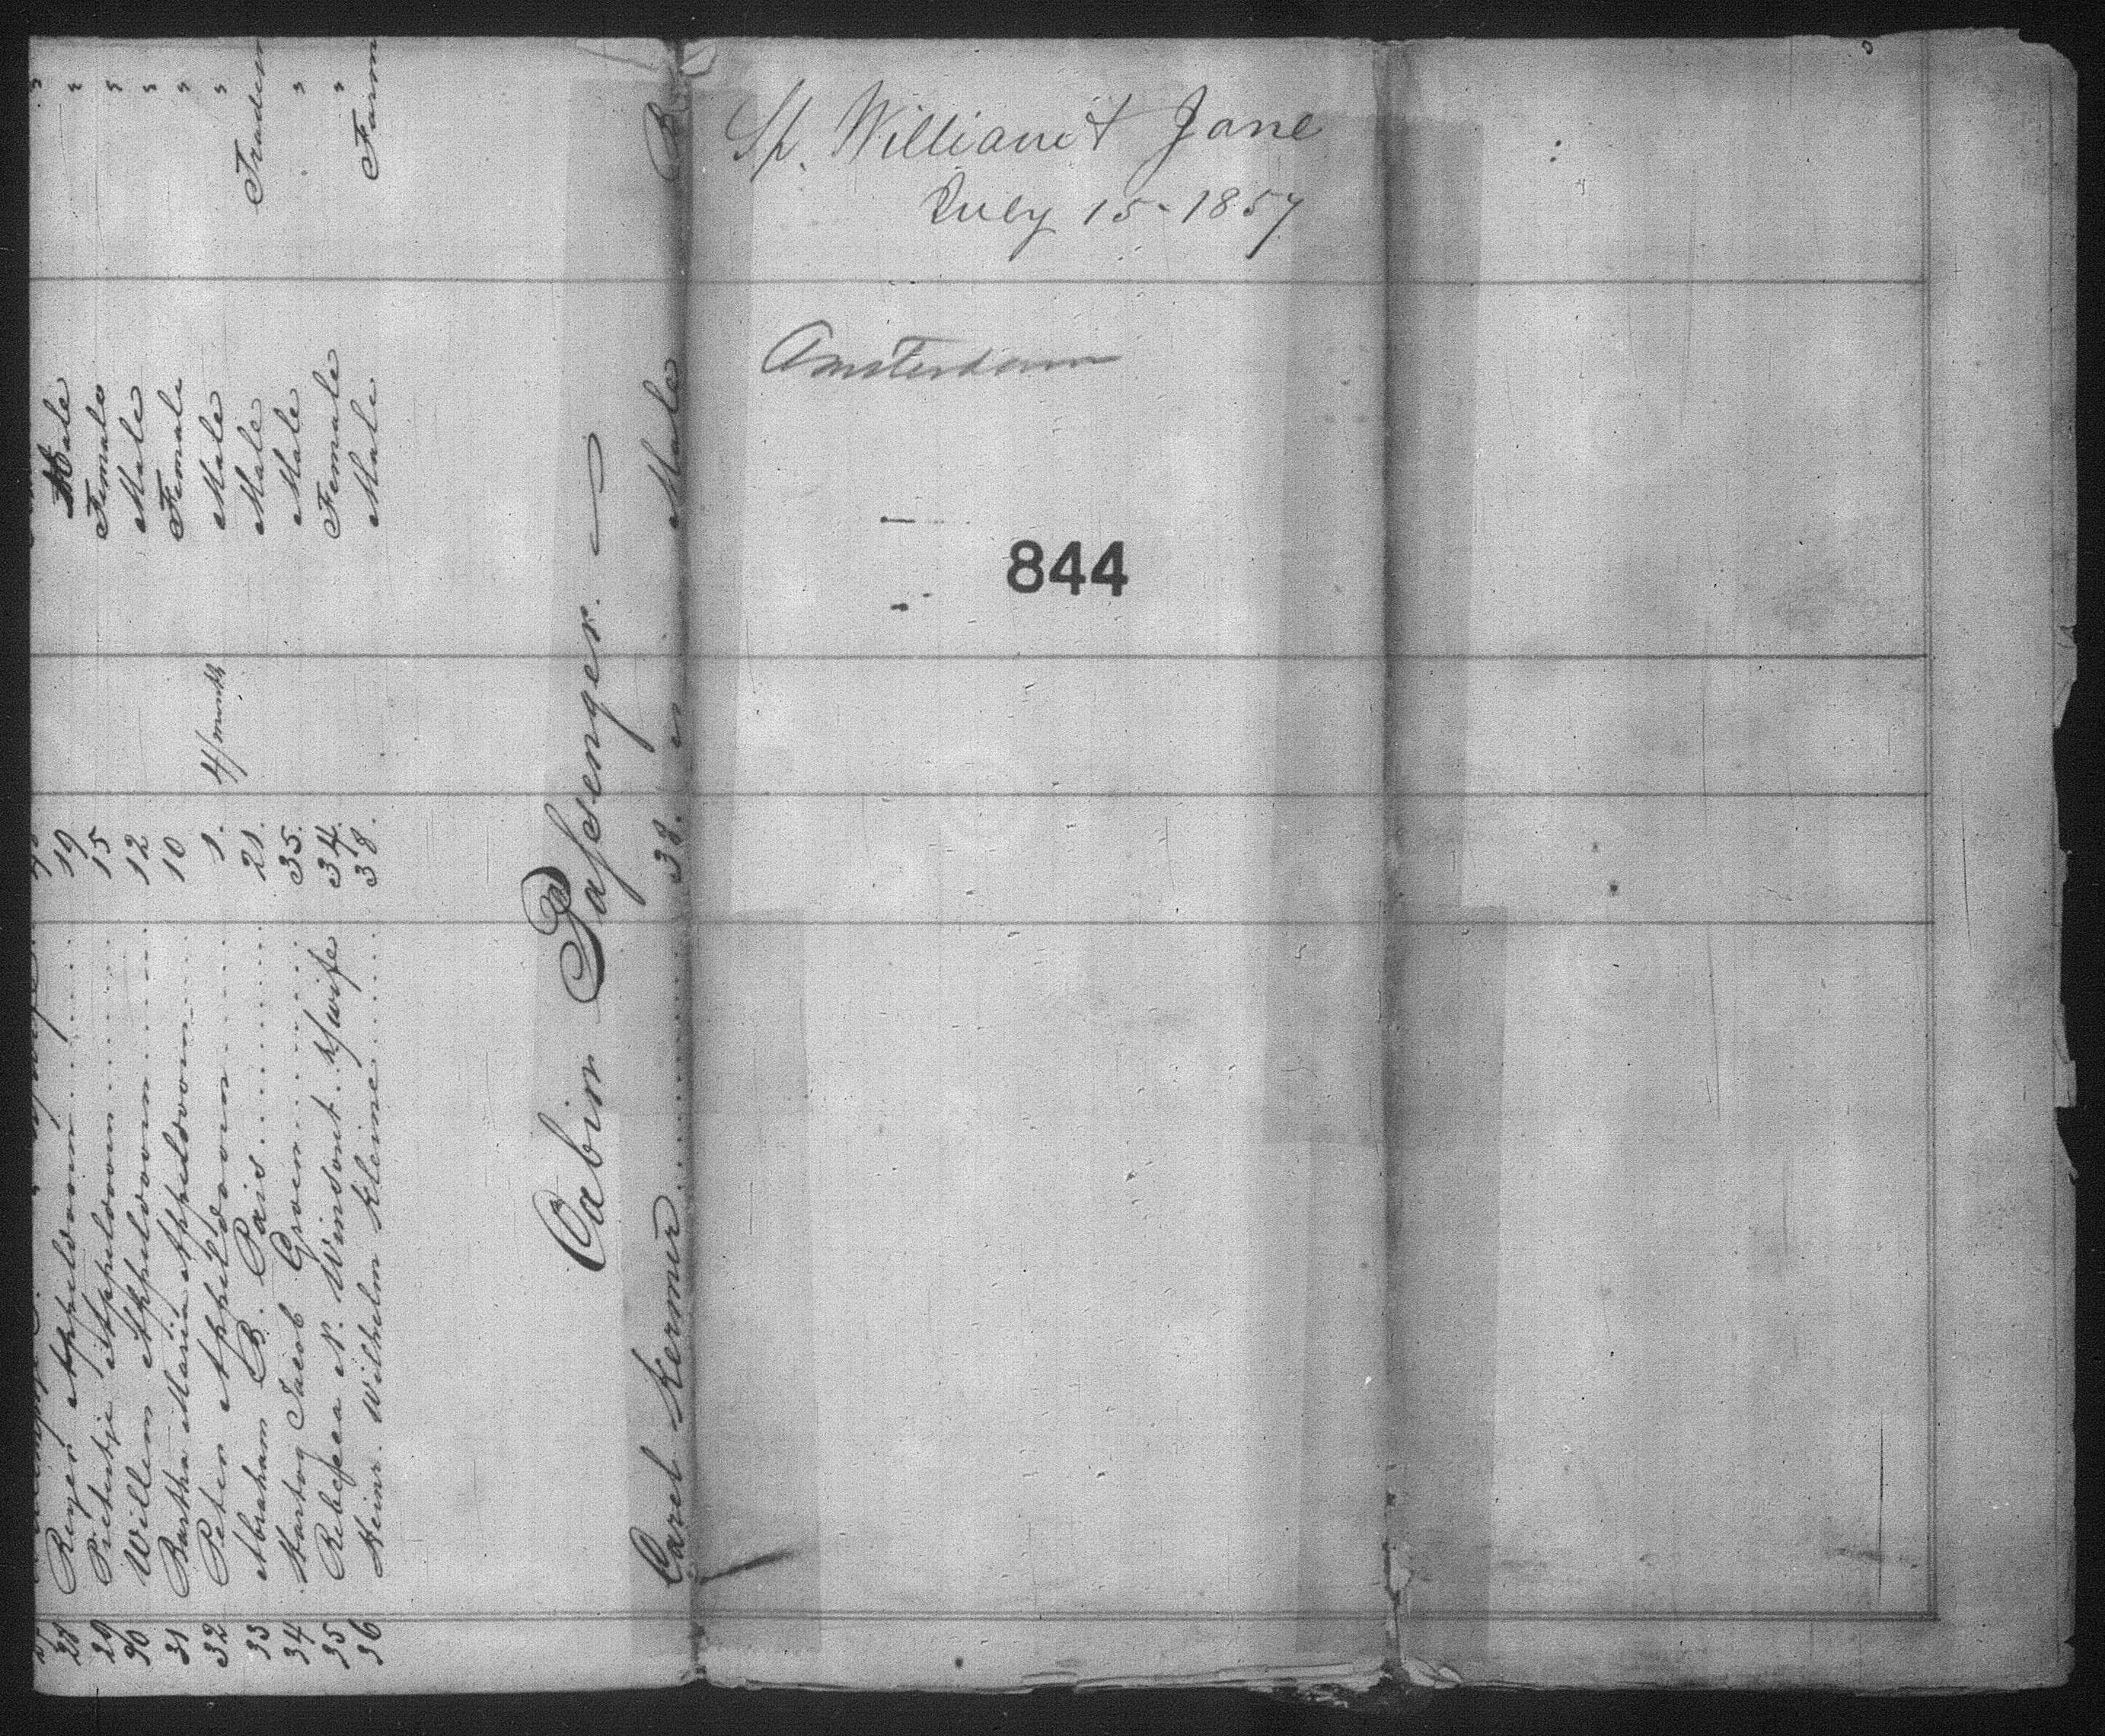 Sp. William & Jane
July 15 - 1857
Amsterdam
844
28 Reyer Appeldoorn 19 Male "
29 Pietertje Appeldoorn 15 Female "
30 Willem Appeldoorn 12 Male "
31 Bartha Maria Appeldoorn 10 Female "
32 Peter Appeldoorn 1. 4/months Male "
33 Abraham B. Pais 21. Male
34 Hartog Jacob Groen 35. Male "
35 Rebecca N. Winsont h/wife 34. Female "
36 Heinr. Wilhelm Kleine 38. Male Farm
Cabin Passenger. —
Carel Kermer 38. " Male